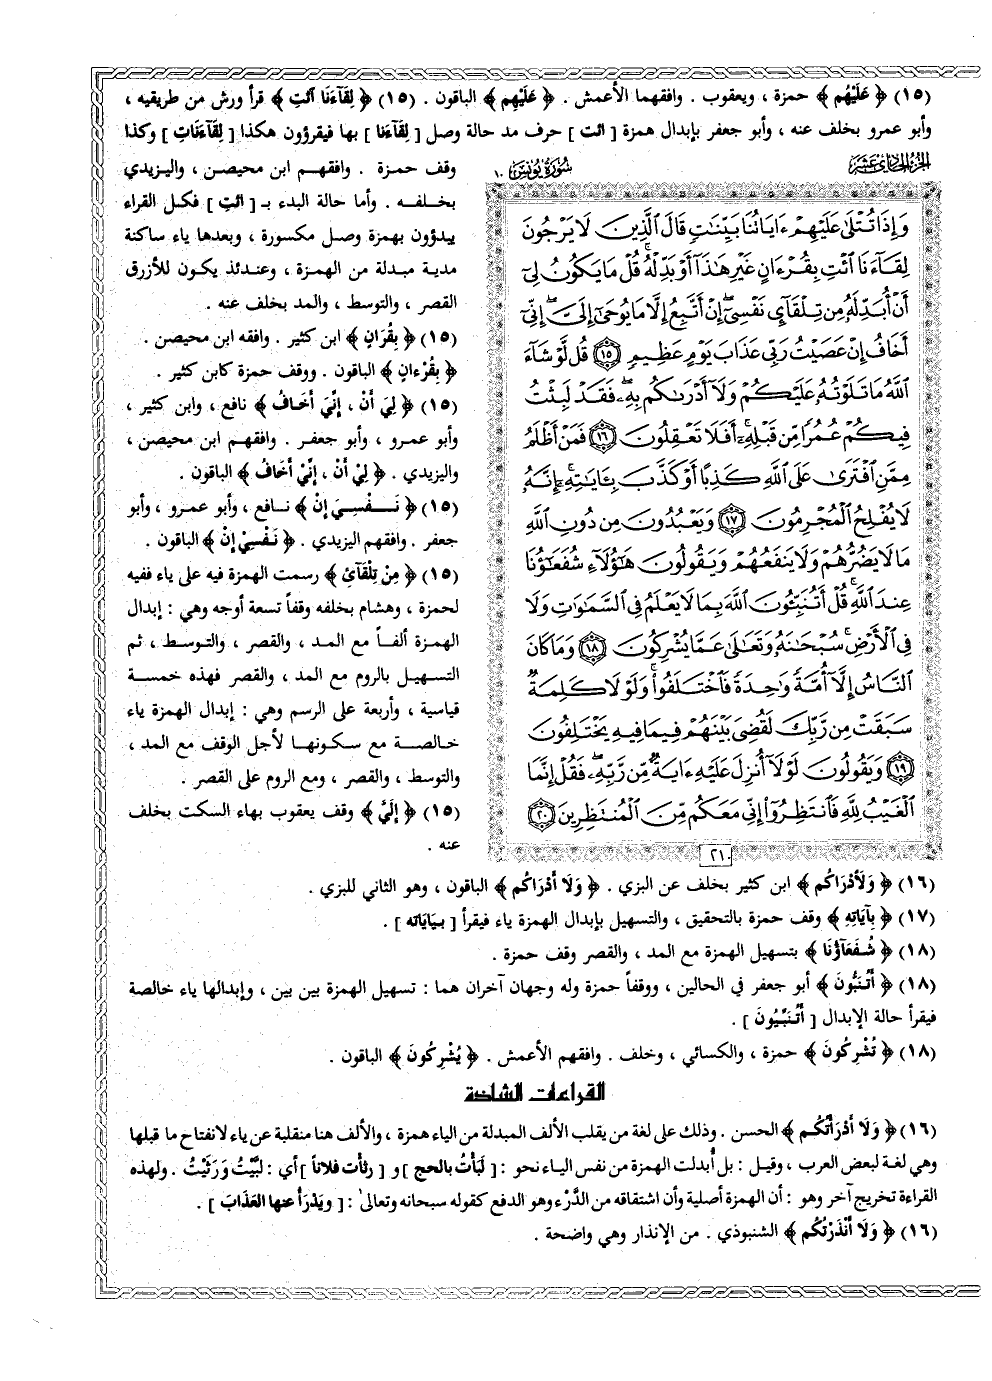 (١٥) ﴿ عَلَيْهُم ﴾ حمزة ، ويعقوب . وافقهما الأعمش . ﴿ عَلَيْهِم ﴾ الباقون . (١٥) ﴿ لِقَآءَنَا ائْتِ ﴾ قرأ ورش من طريقيه ،
وأبو عمرو بخلف عنه ، وأبو جعفر بإبدال همزة [ ائت ] حرف مد حالة وصل [ لِقَآءَنا ] بها فيقرؤون هكذا [ لِقَآءَنَاتِ ] وكذا
وقف حمزة . وافقهم ابن محيصن ، واليزيدي
بخلفه . وأما حالة البدء بـ [ ائتِ ] فكل القراء
يبدؤون بهمزة وصل مكسورة ، وبعدها ياء ساكنة
مدية مبدلة من الهمزة ، وعندئذ يكون للأزرق
القصر ، والتوسط ، والمد بخلف عنه .
(١٥) ﴿ بِقُرَانٍ ﴾ ابن كثير . وافقه ابن محيصن .
﴿ بِقُرْءانٍ ﴾ الباقون . ووقف حمزة كابن كثير .
(١٥) ﴿ لِيَ أَنْ ، إِنِّيَ أَخَافُ ﴾ نافع ، وابن كثير ،
وأبو عمرو ، وأبو جعفر . وافقهم ابن محيصن ،
واليزيدي . ﴿ لِيْ أَنْ ، إِنِّيْ أَخَافُ ﴾ الباقون .
(١٥) ﴿ نَـفْسِيَ إِنْ ﴾ نافع ، وأبو عمرو ، وأبو
جعفر . وافقهم اليزيدي . ﴿ نَفْسِيْ إِنْ ﴾ الباقون .
(١٥) ﴿ مِنْ تِلْقَآئِ ﴾ رسمت الهمزة فيه على ياء ففيه
لحمزة ، وهشام بخلفه وقفاً تسعة أوجه وهي : إبدال
الهمزة ألفاً مع المد ، والقصر ، والتوسط ، ثم
التسهيل بالروم مع المد ، والقصر فهذه خمسة
قياسية ، وأربعة على الرسم وهي : إبدال الهمزة ياء
خالصة مع سكونها لأجل الوقف مع المد ،
والتوسط ، والقصر ، ومع الروم على القصر .
(١٥) ﴿ إِلَيَّ ﴾ وقف يعقوب بهاء السكت بخلف
عنه .
الجزء الحادي عشر سورة يونس ١٠
وَإِذَا تُتْلَىٰ عَلَيْهِمْ ءَايَاتُنَا بَيِّنَٰتٍ قَالَ ٱلَّذِينَ لَا يَرْجُونَ
لِقَآءَنَا ٱئْتِ بِقُرْءَانٍ غَيْرِ هَٰذَآ أَوْ بَدِّلْهُ ۚ قُلْ مَا يَكُونُ لِىٓ
أَنْ أُبَدِّلَهُۥ مِن تِلْقَآئِ نَفْسِىٓ ۖ إِنْ أَتَّبِعُ إِلَّا مَا يُوحَىٰٓ إِلَىَّ ۖ إِنِّىٓ
أَخَافُ إِنْ عَصَيْتُ رَبِّى عَذَابَ يَوْمٍ عَظِيمٍ ١٥ قُل لَّوْ شَآءَ
ٱللَّهُ مَا تَلَوْتُهُۥ عَلَيْكُمْ وَلَآ أَدْرَىٰكُم بِهِۦ ۖ فَقَدْ لَبِثْتُ
فِيكُمْ عُمُرًا مِّن قَبْلِهِۦٓ ۚ أَفَلَا تَعْقِلُونَ ١٦ فَمَنْ أَظْلَمُ
مِمَّنِ ٱفْتَرَىٰ عَلَى ٱللَّهِ كَذِبًا أَوْ كَذَّبَ بِـَٔايَٰتِهِۦٓ ۚ إِنَّهُۥ
لَا يُفْلِحُ ٱلْمُجْرِمُونَ ١٧ وَيَعْبُدُونَ مِن دُونِ ٱللَّهِ
مَا لَا يَضُرُّهُمْ وَلَا يَنفَعُهُمْ وَيَقُولُونَ هَٰٓؤُلَآءِ شُفَعَٰٓؤُنَا
عِندَ ٱللَّهِ ۚ قُلْ أَتُنَبِّـُٔونَ ٱللَّهَ بِمَا لَا يَعْلَمُ فِى ٱلسَّمَٰوَٰتِ وَلَا
فِى ٱلْأَرْضِ ۚ سُبْحَٰنَهُۥ وَتَعَٰلَىٰ عَمَّا يُشْرِكُونَ ١٨ وَمَا كَانَ
ٱلنَّاسُ إِلَّآ أُمَّةً وَٰحِدَةً فَٱخْتَلَفُوا۟ ۚ وَلَوْلَا كَلِمَةٌ
سَبَقَتْ مِن رَّبِّكَ لَقُضِىَ بَيْنَهُمْ فِيمَا فِيهِ يَخْتَلِفُونَ
١٩ وَيَقُولُونَ لَوْلَآ أُنزِلَ عَلَيْهِ ءَايَةٌ مِّن رَّبِّهِۦ ۖ فَقُلْ إِنَّمَا
ٱلْغَيْبُ لِلَّهِ فَٱنتَظِرُوٓا۟ إِنِّى مَعَكُم مِّنَ ٱلْمُنتَظِرِينَ ٢٠
٢١٠
(١٦) ﴿ وَلَأَدْرَاكُم ﴾ ابن كثير بخلف عن البزي . ﴿ وَلَا أَدْرَاكُم ﴾ الباقون ، وهو الثاني للبزي .
(١٧) ﴿ بِآيَاتِهِ ﴾ وقف حمزة بالتحقيق ، والتسهيل بإبدال الهمزة ياء فيقرأ [ بِيَايَاته ] .
(١٨) ﴿ شُفَعَآؤُنَا ﴾ بتسهيل الهمزة مع المد ، والقصر وقف حمزة .
(١٨) ﴿ أَتُنَبُّونَ ﴾ أبو جعفر في الحالين ، ووقفاً حمزة وله وجهان آخران هما : تسهيل الهمزة بين بين ، وإبدالها ياء خالصة
فيقرأ حالة الإبدال [ أَتُنَبِّيُونَ ] .
(١٨) ﴿ تُشْرِكُونَ ﴾ حمزة ، والكسائي ، وخلف . وافقهم الأعمش . ﴿ يُشْرِكُونَ ﴾ الباقون .
القراءات الشاذة
(١٦) ﴿ وَلَا أَدْرَأْتُكُم ﴾ الحسن . وذلك على لغة من يقلب الألف المبدلة من الياء همزة ، والألف هنا منقلبة عن ياء لانفتاح ما قبلها
وهي لغة لبعض العرب ، وقيل : بل أُبدلت الهمزة من نفس الياء نحو : [ لَبَأتُ بالحج ] و [ رثأت فلاناً ] أي : لَبَّيْتُ وَرَثَيْتُ . ولهذه
القراءة تخريج آخر وهو : أن الهمزة أصلية وأن اشتقاقه من الدَّرْء وهو الدفع كقوله سبحانه وتعالى : [ ويَدْرَأ عنها العَذَابَ ] .
(١٦) ﴿ وَلَا أَنْذَرْتُكُم ﴾ الشنبوذي . من الإنذار وهي واضحة .